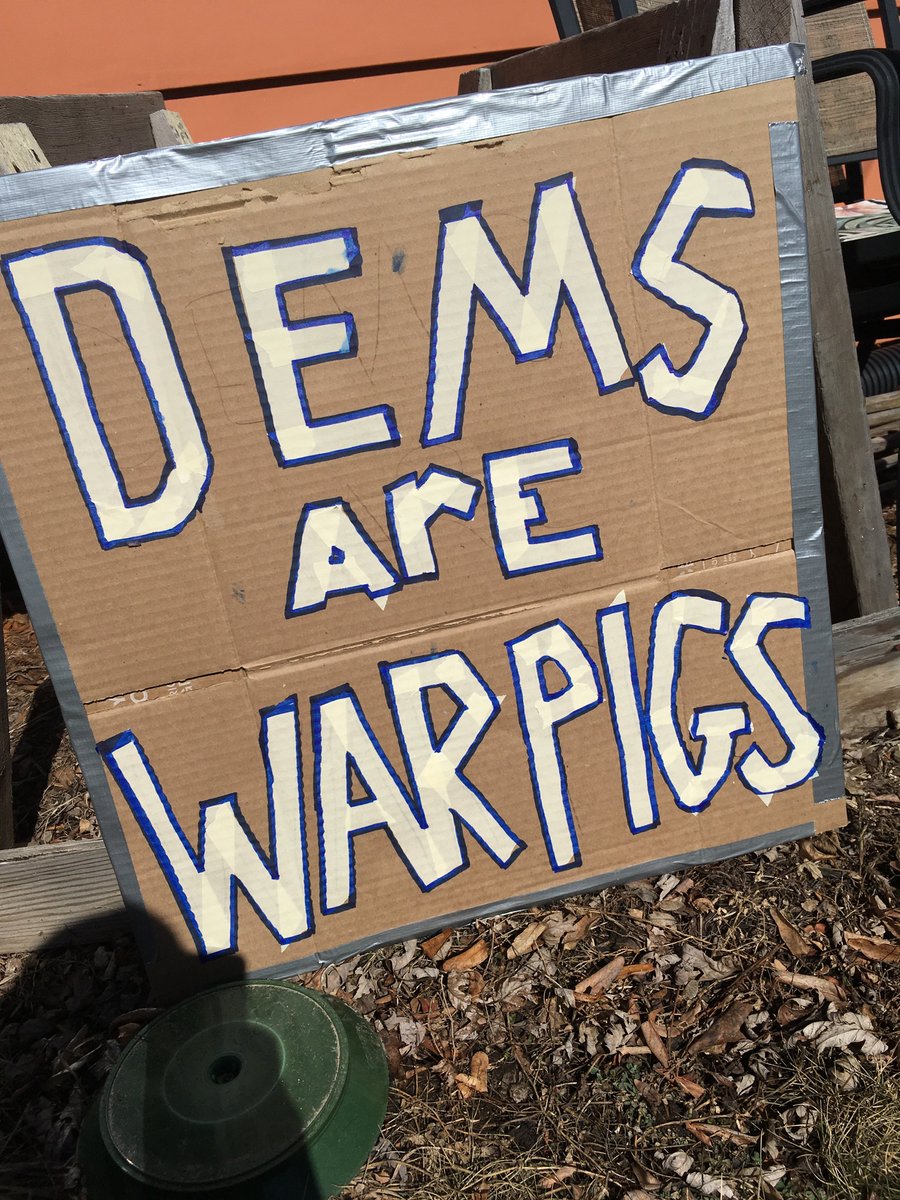 DEMS
ArE
WAR PIGS